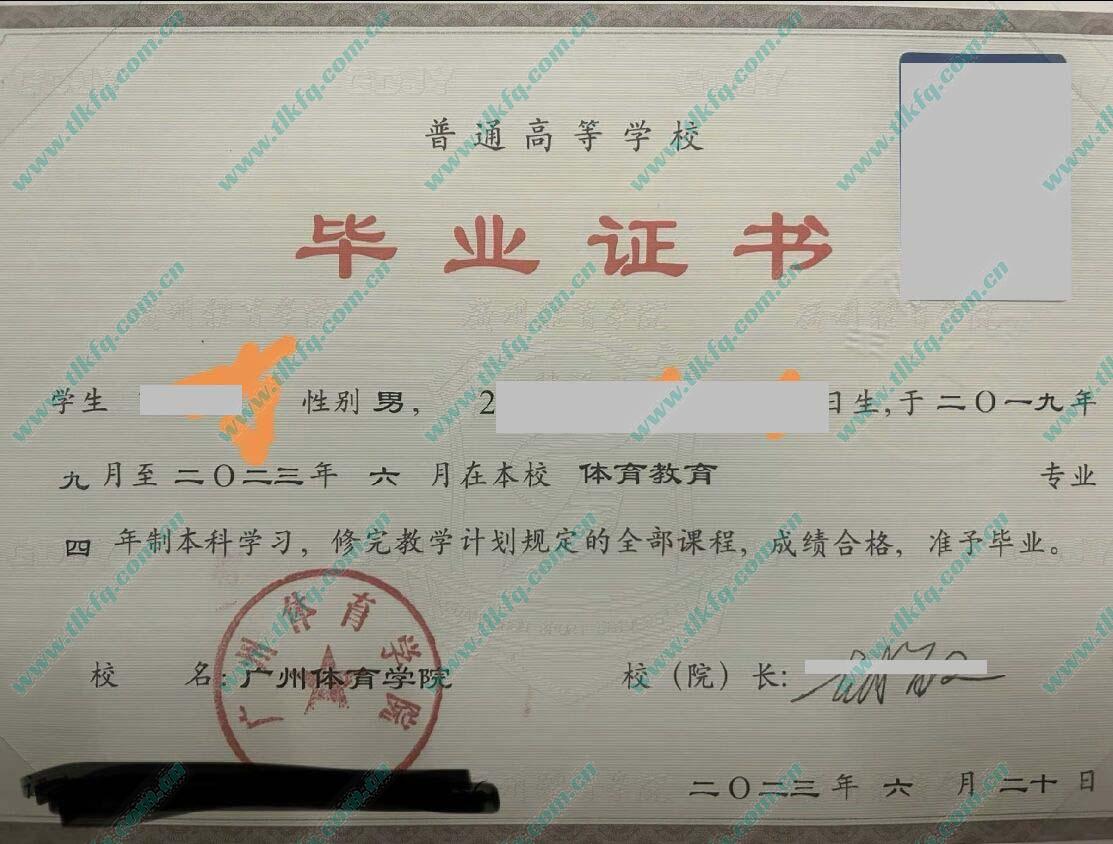 普通高等学校
毕业证书
学生 性别 男, 2 日生,于二〇一九年
九月至二〇二三年 六 月在本校 体育教育 专业
四 年制本科学习,修完教学计划规定的全部课程,成绩合格,准予毕业。
校 名:广州体育学院 校(院)长:
广州体育学院
二〇二三年 六 月 二十日
www.tlkfq.com.cn